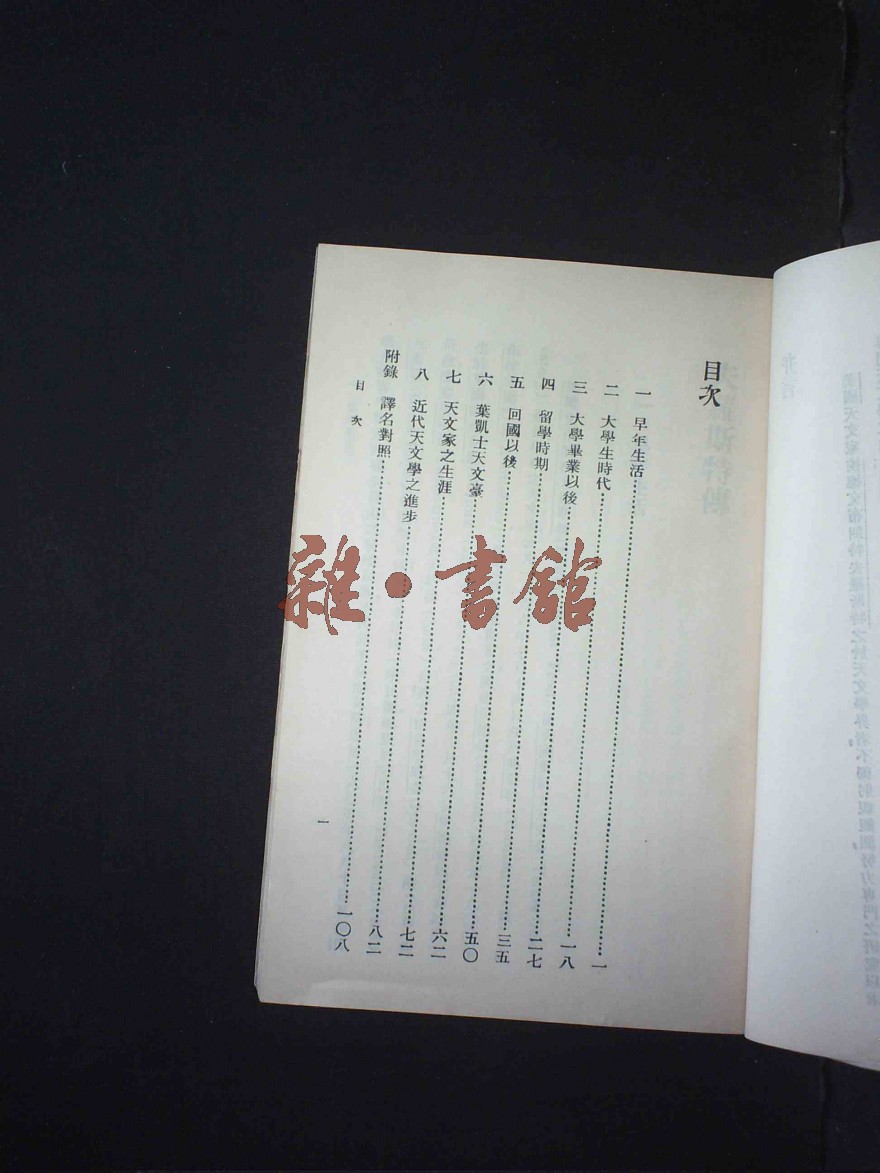 目次
一 早年生活……一
二 大學生時代……一八
三 大學畢業以後……二七
四 留學時期……三五
五 回國以後……五〇
六 葉凱士天文臺……六二
七 天文家之生涯……七二
八 近代天文學之進步……八二
附錄 譯名對照……一〇八
目次
一
雜·書館